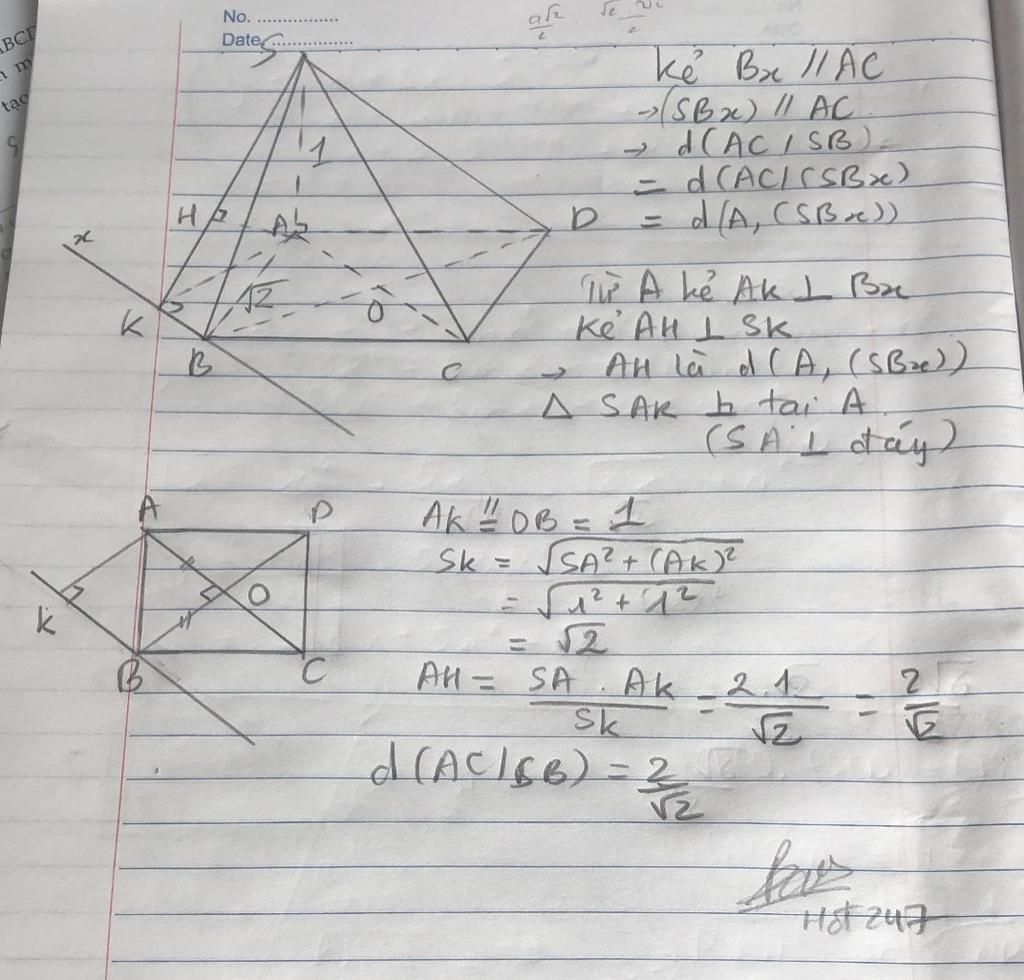 ABCD
m
tạo
No. ................
Date ................
a√2/2 . √2·√2/2
S
1
H
A
D
x
√2
O
K
B
C
kẻ Bx // AC
→ (SBx) // AC
→ d(AC/SB)
= d(AC/(SBx)
= d(A, (SBx))
Từ A kẻ AK ⊥ Bx
kẻ AH ⊥ SK
→ AH là d(A, (SBx))
Δ SAK ⊥ tại A
(SA ⊥ đáy)
A
D
O
K
B
C
AK = OB = 1
SK = √(SA² + (AK)²)
= √(1² + 1²)
= √2
AH = SA . AK / SK = 2.1/√2 = 2/√2
d(AC/SB) = 2/√2
Hst 247